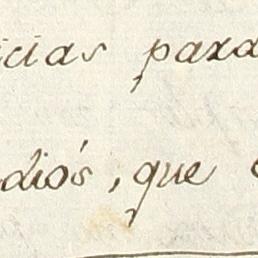 icias para
diós, que